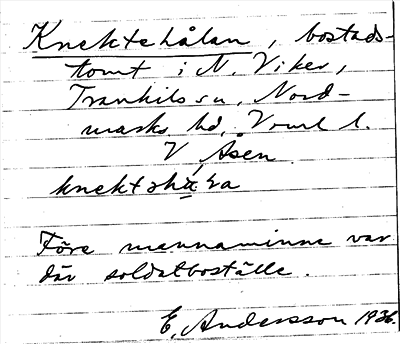 Knektehålan, bostads-
tomt i N. Viker,
Trankils sn, Nord-
marks hd, Vrml l.
V Åsen.
knektshåla
Före mennaminne var
där soldatboställe.
E. Andersson 1936.